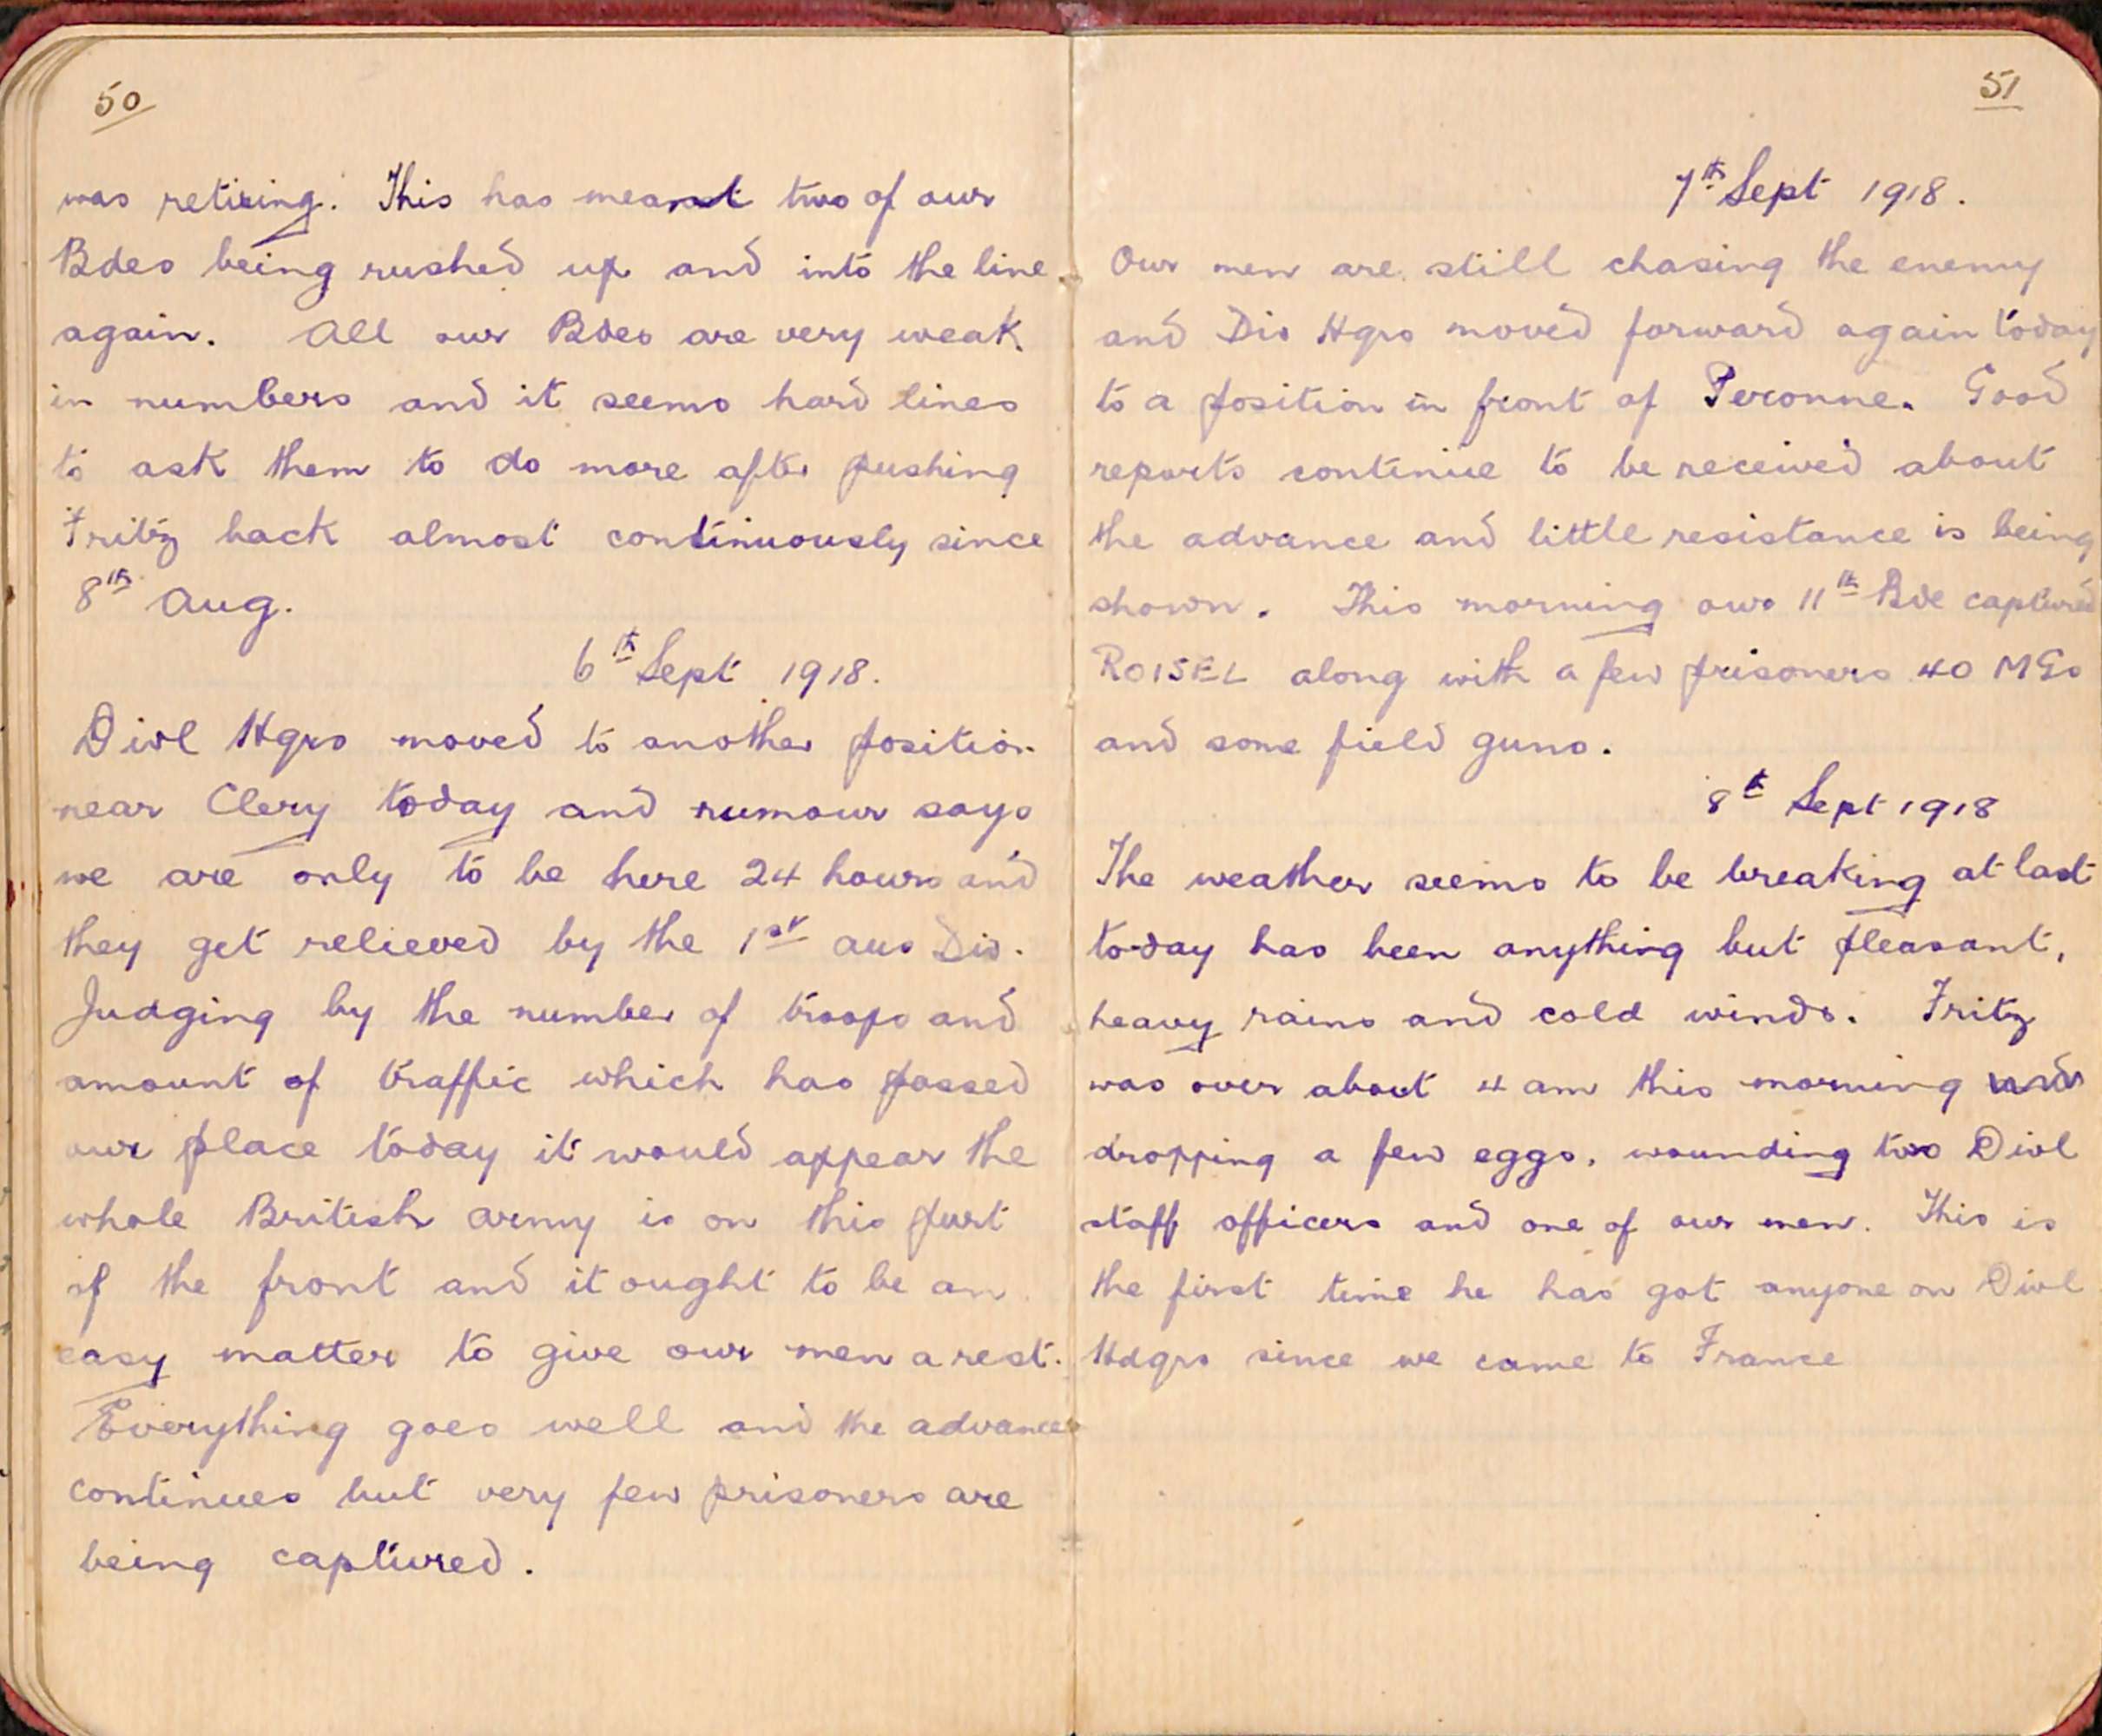 50
was retiring. This has meant two of our
Bdes being rushed up and into the line
again. All our Bdes are very weak
in numbers and it seems hard lines
to ask them to do more after pushing
Fritz back almost continuously since
8th Aug.
6th Sept 1918.
Divl Hqrs moved to another position
near Clery today and rumour says
we are only to be here 24 hours and
they get relieved by the 1st Aus Div.
Judging by the number of troops and
amount of traffic which has passed
our place today it would appear the
whole British army is on this part
of the front and it ought to be an
easy matter to give our men a rest.
Everything goes well and the advance
continues but very few prisoners are
being captured.
51
7th Sept 1918.
Our men are still chasing the enemy
and Div Hqrs moved forward again today
to a position in front of Peronne. Good
reports continue to be received about
the advance and little resistance is being
shown. This morning our 11th Bde captured
ROISEL along with a few prisoners 40 MGs
and some field guns.
8th Sept 1918
The weather seems to be breaking at last
today has been anything but pleasant,
heavy rains and cold winds. Fritz
was over about 4 am this morning
dropping a few eggs, wounding two Divl
staff officers and one of our men. This is
the first time he has got anyone on Divl
Hdqrs since we came to France